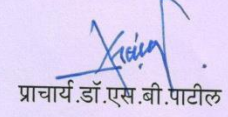 प्राचार्य.डॉ.एस.बी.पाटील